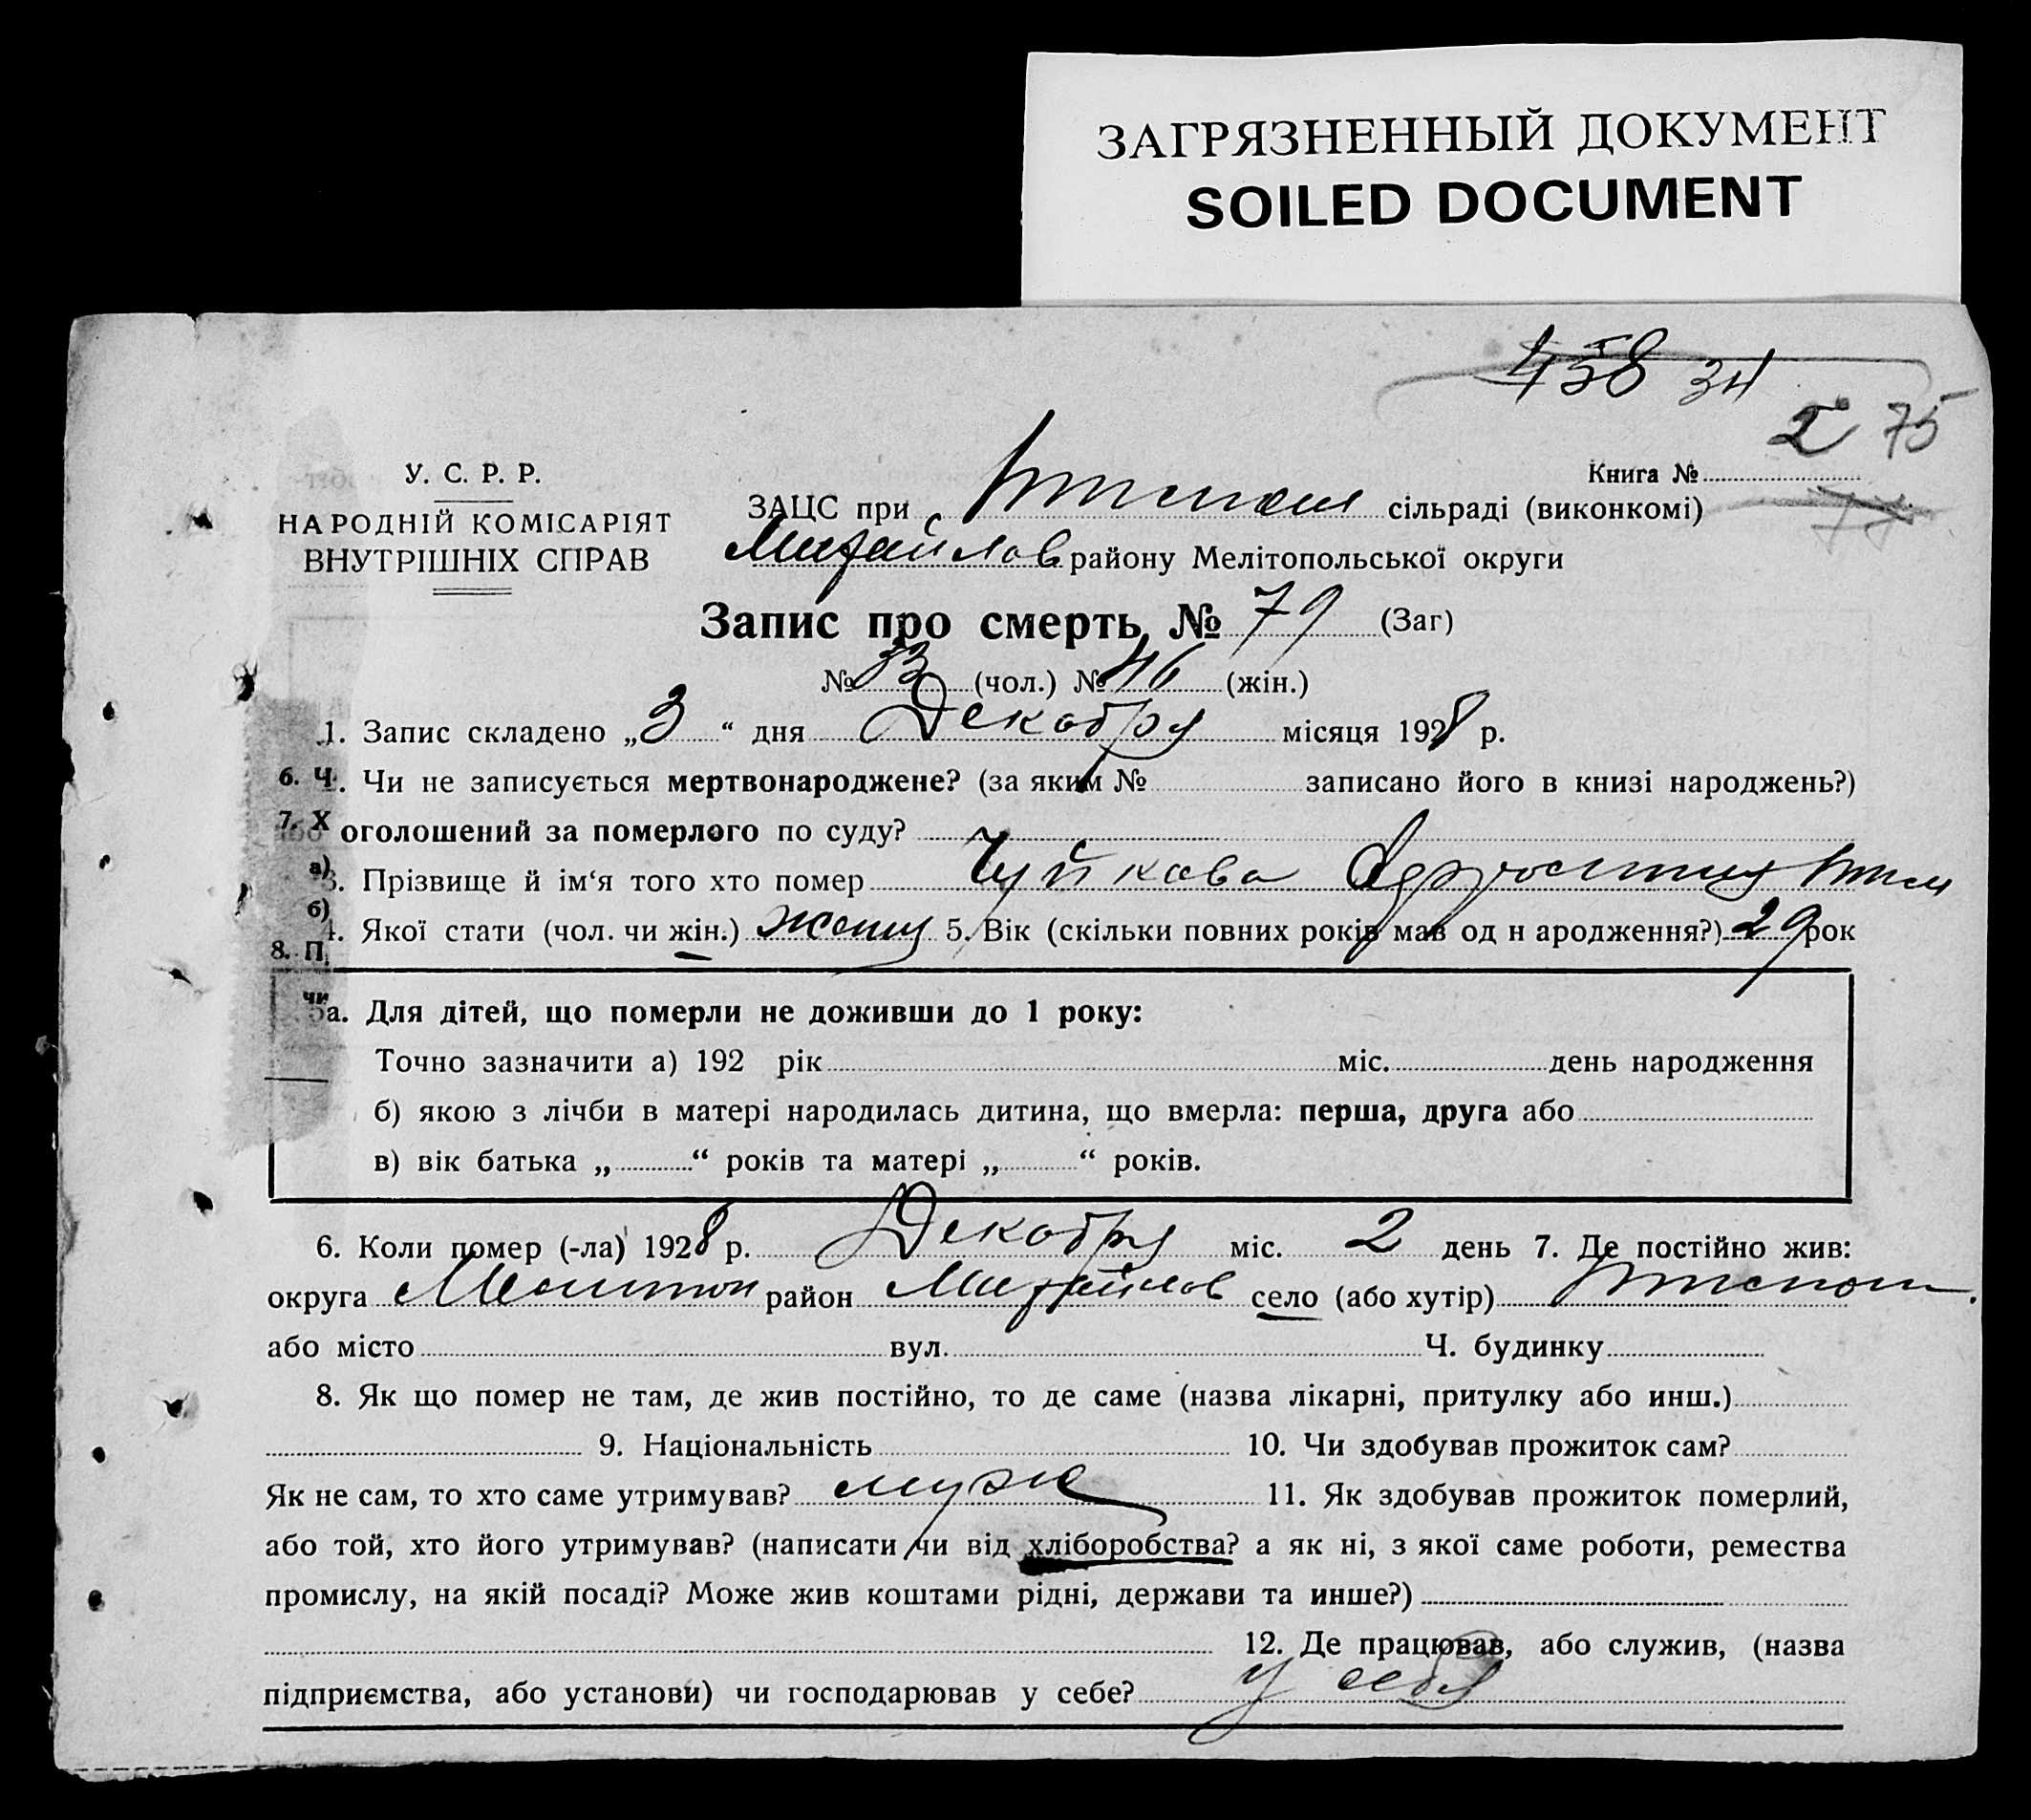 ЗАГРЯЗНЕННЫЙ ДОКУМЕНТ
SOILED DOCUMENT
458 34
2 75
У. С. Р. Р.
НАРОДНІЙ КОМІСАРІЯТ
ВНУТРІШНІХ СПРАВ
Книга №
ЗАЦС при сільраді (виконкомі)
Михайлов району Мелітопольської округи
Запис про смерть № 79 (Заг)
№ 33 (чол.) № 46 (жін.)
1. Запис складено „3“ дня Декабря місяця 1928 р.
6. Ч. Чи не записується мертвонароджене? (за яким № записано його в книзі народжень?)
7. Х оголошений за померлого по суду?
а) 3. Прізвище й ім‘я того хто помер Чуйкова
б) 4. Якої стати (чол. чи жін.) 5. Вік (скільки повних років мав од н ародження?) 29 рок
8. П
чи 5а. Для дітей, що померли не доживши до 1 року:
Точно зазначити а) 192 рік міс. день народження
б) якою з лічби в матері народилась дитина, що вмерла: перша, друга або
в) вік батька „ “ років та матері „ “ років.
6. Коли помер (-ла) 1928 р. Декабря міс. 2 день 7. Де постійно жив:
округа район Михайлов село (або хутір)
або місто вул. Ч. будинку
8. Як що помер не там, де жив постійно, то де саме (назва лікарні, притулку або инш.)
9. Національність 10. Чи здобував прожиток сам?
Як не сам, то хто саме утримував? муж 11. Як здобував прожиток померлий,
або той, хто його утримував? (написати чи від хліборобства? а як ні, з якої саме роботи, ремества
промислу, на якій посаді? Може жив коштами рідні, держави та инше?)
12. Де працював, або служив, (назва
підприємства, або установи) чи господарював у себе? у себя